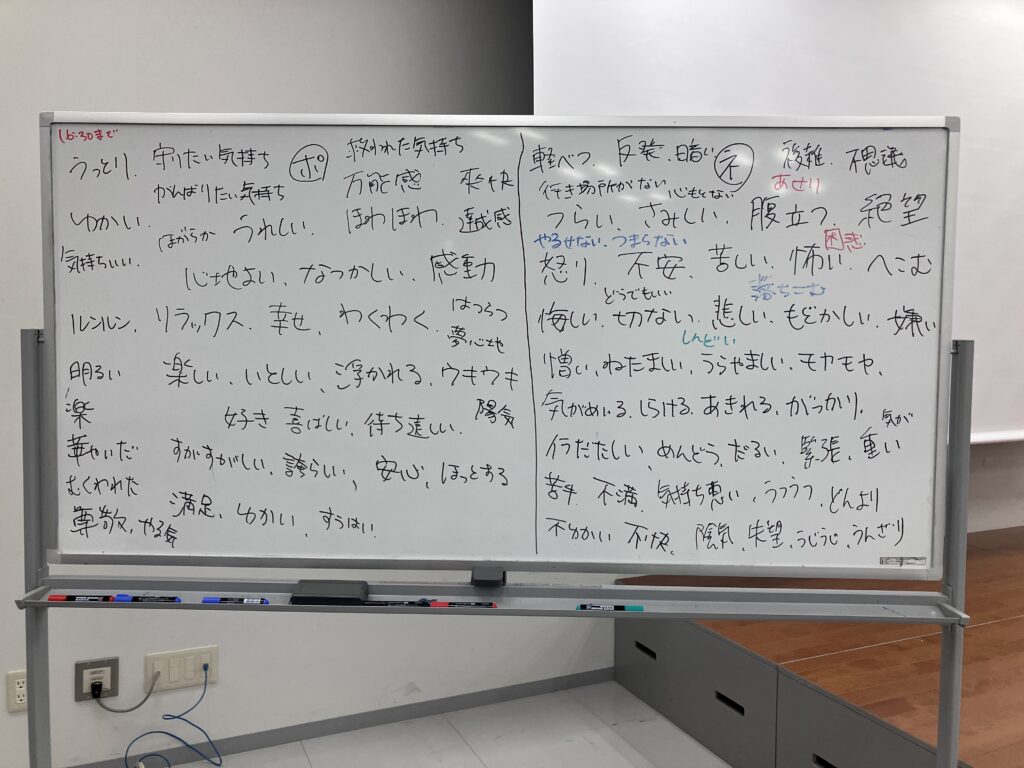 16:30まで
うっとり、守りたい気持ち ㋭ 救われた気持ち
がんばりたい気持ち 万能感 爽快
ゆかい、ほがらか うれしい、ほわほわ、達成感
気持ちいい、心地よい、なつかしい、感動
ルンルン、リラックス、幸せ、わくわく、はつらつ
夢心地
明るい 楽しい、いとしい、浮かれる、ウキウキ
楽 好き 喜ばしい、待ち遠しい、陽気
華やいだ すがすがしい、誇らしい、安心、ほっとする
むくわれた
満足、ゆかい、すうはい
尊敬、やる気
軽べつ、反発、暗い ㋧ 複雑、不思議
行き場所がない 心もとない あせり
つらい、さみしい、腹立つ、絶望
やるせない、つまらない 困惑
怒り、不安、苦しい、怖い、へこむ
どうでもいい 落ちこむ
悔しい、切ない、悲しい、もどかしい、嫌い
しんどい
憎い、ねたましい、うらやましい、モヤモヤ、
気がめいる、しらける、あきれる、がっかり、
腹だたしい、めんどう、だるい、緊張、気が重い
苦手、不満、気持ち悪い、うつうつ、どんより
不ゆかい、不快、陰気、失望、うじうじ、うんざり